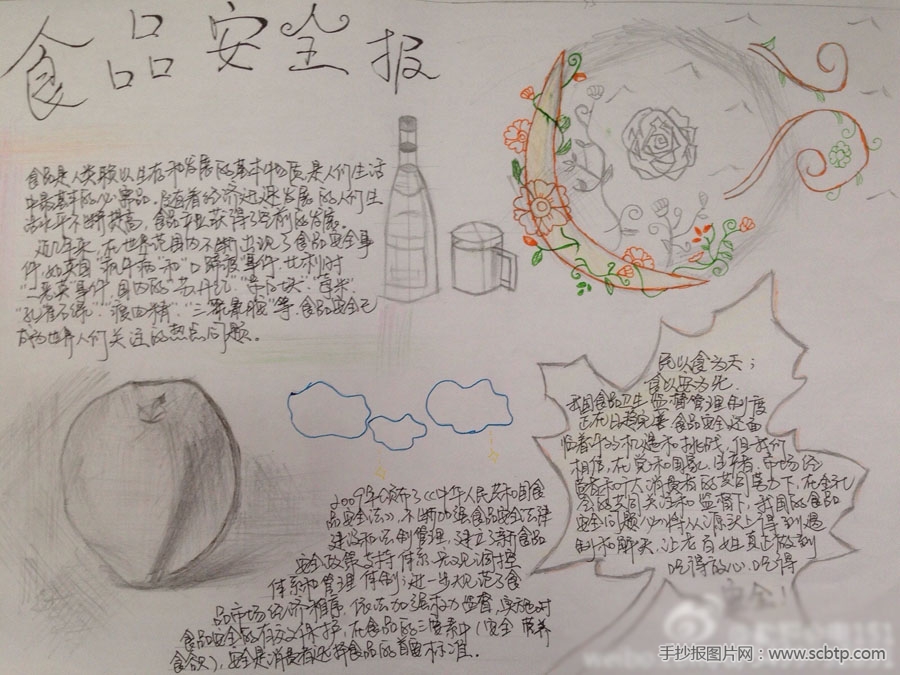 食品安全报
食品是人类赖以生存和发展的基本物质是人们生活
中最基本的必需品。随着经济迅速发展的人们生
活水平不断提高，食品产业获得了空前的发展。
近几年来，在世界范围内不断出现了食品安全事
件，如英国"疯牛病"和"口蹄疫"事件，比利时
"二恶英"事件，国内的"苏丹红"、
"孔雀石绿"、"瘦肉精"、"三聚氰胺"等。食品安全已
成为世界人们关注的热点问题。
民以食为天；
食以安为先。
我国食品卫生监督管理制度
正在日趋完善，食品安全还面
临着平的机遇和挑战，但我们
相信，在党和国家、生产者、市场经
营者和广大消费者的共同努力下，在全社
会的共同关注和监督下，我国的食品
安全问题必将从源头上得到遏
制和解决，让老百姓真正做到
吃得放心，吃得
安全！
2009年《中华人民共和国食
品安全法》，不断加强食品安全法律
建设和法制管理，建立了新食品
安全政策支持体系、宏观调控
体系和管理体制；进一步规范了食
品市场经济秩序，依法加强权力监督，实施对
食品安全的有效保护，在食品的三要素中（安全 营养
食欲），安全是消费者选择食品的首要标准。
手抄报图片网：www.scbtp.com